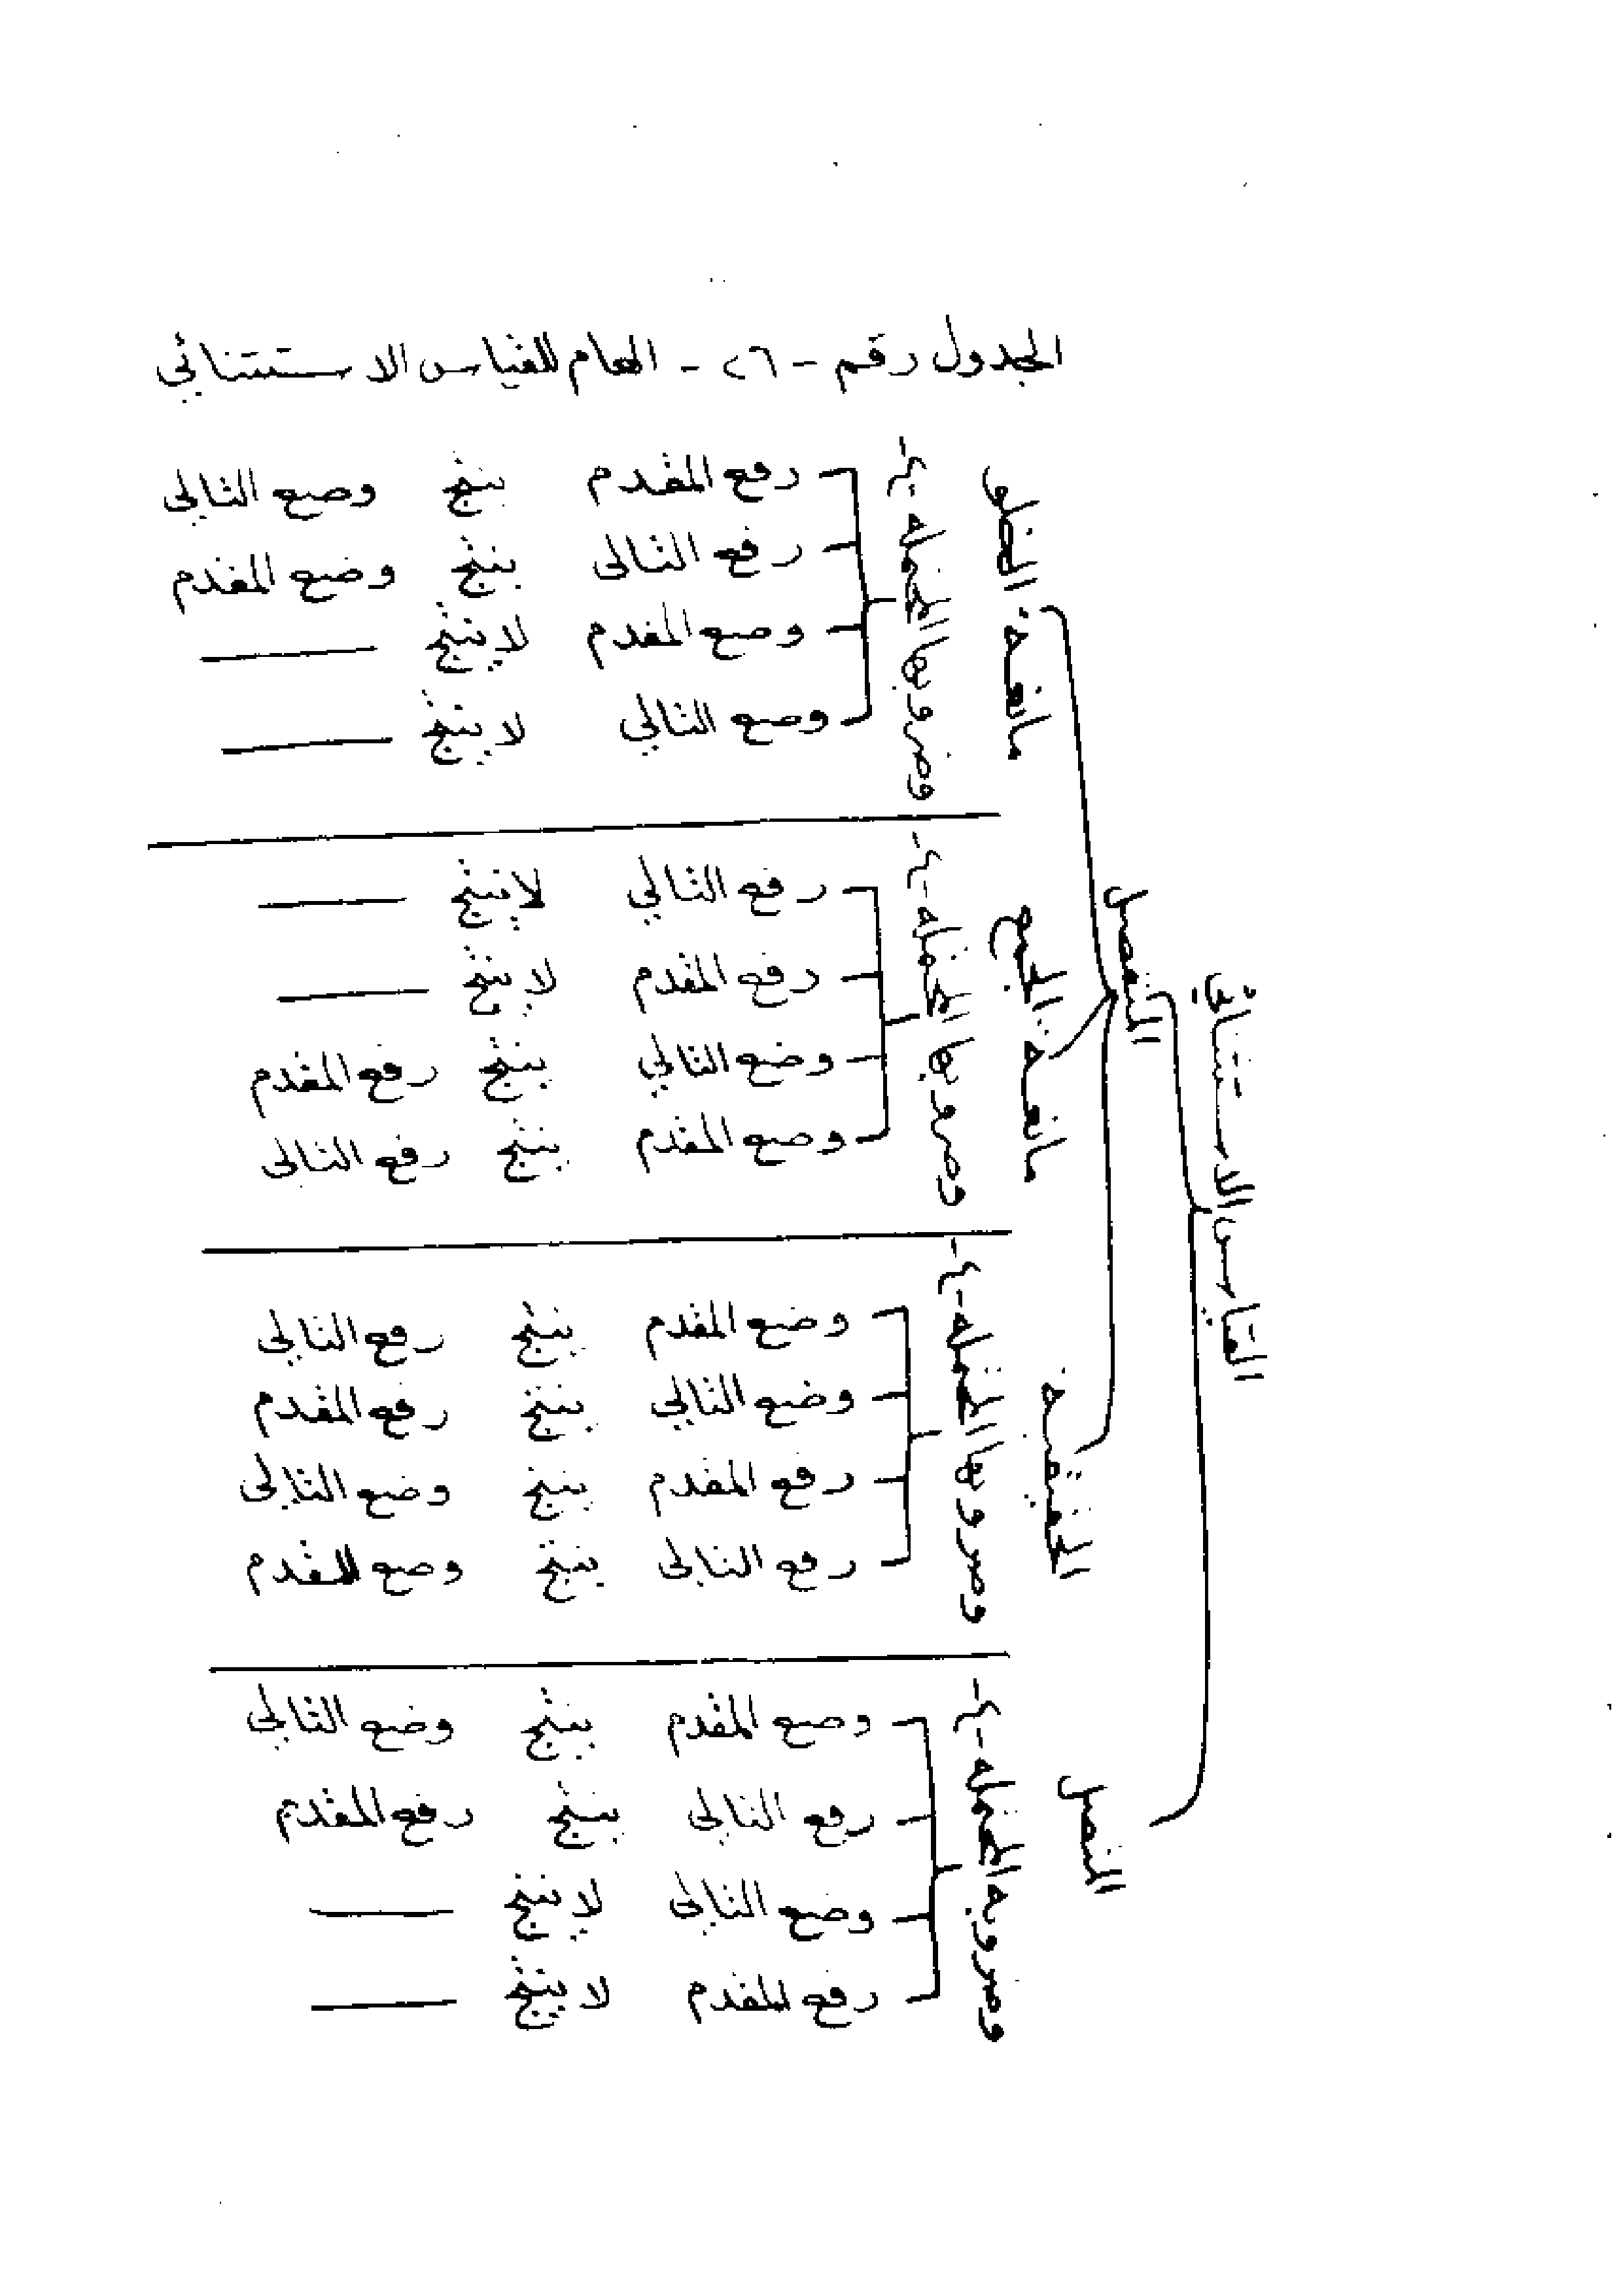 الجدول رقم - ٢٦ - العام للقياس الاستثنائي
القياس الاستثنائي
المنفصل
مانعة الخلو
وضروبها المحتملة -٤-
رفع المقدم ينتج وضع التالي
رفع التالي ينتج وضع المقدم
وضع المقدم لا ينتج ——
وضع التالي لا ينتج ——
مانعة الجمع
وضروبها المحتملة -٤-
رفع التالي لا ينتج ——
رفع المقدم لا ينتج ——
وضع التالي ينتج رفع المقدم
وضع المقدم ينتج رفع التالي
الحقيقية
وضروبها المحتملة -٤-
وضع المقدم ينتج رفع التالي
وضع التالي ينتج رفع المقدم
رفع المقدم ينتج وضع التالي
رفع التالي ينتج وضع المقدم
المتصل
وضروبه المحتملة -٤-
وضع المقدم ينتج وضع التالي
رفع التالي ينتج رفع المقدم
وضع التالي لا ينتج ——
رفع المقدم لا ينتج ——